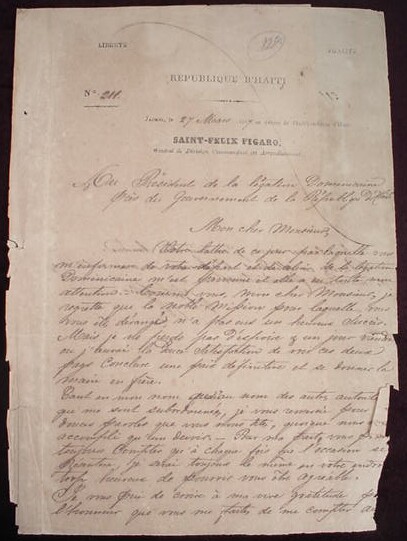 LIBERTÉ
ÉGALITÉ
REPUBLIQUE D'HAITI
N° 211.
27 Mars
SAINT-FELIX FIGARO,
Général de Division, Commandant
Au Président de la légation Dominicaine
Près du Gouvernement de la République d'Haïti
Mon cher Monsieur,
Votre lettre de ce jour par laquelle vous
m'informez de votre départ et de celui de la légation
Dominicaine m'est parvenue et elle a eu toute mon
attention. Comme vous, Mon cher Monsieur, je
regrette que la noble Mission pour laquelle vous
vous êtes dérangé n'a pas eu un heureux succès.
Mais je ne perds pas d'espoir qu'un jour viendra
où j'aurai la douce satisfaction de voir ces deux
pays conclure une paix définitive et se donner la
main en frère.
Tant en mon nom qu'au nom des autres autorités
qui me sont subordonnées, je vous remercie pour les
douces paroles que vous nous dites, quoique nous n'avons
accompli qu'un devoir. — Par ma part, vous pouvez
toujours compter qu'à chaque fois que l'occasion se
présentera, je serai toujours le même en votre endroit
trop heureux de pouvoir vous être agréable.
Je vous prie de croire à ma vive gratitude pour
l'honneur que vous me faites de me compter au